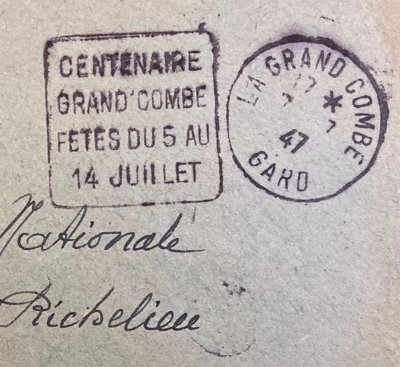 CENTENAIRE
GRAND'COMBE
FETES DU 5 AU
14 JUILLET
LA GRAND COMBE
17 *
7
47
GARD
Nationale
Richelieu